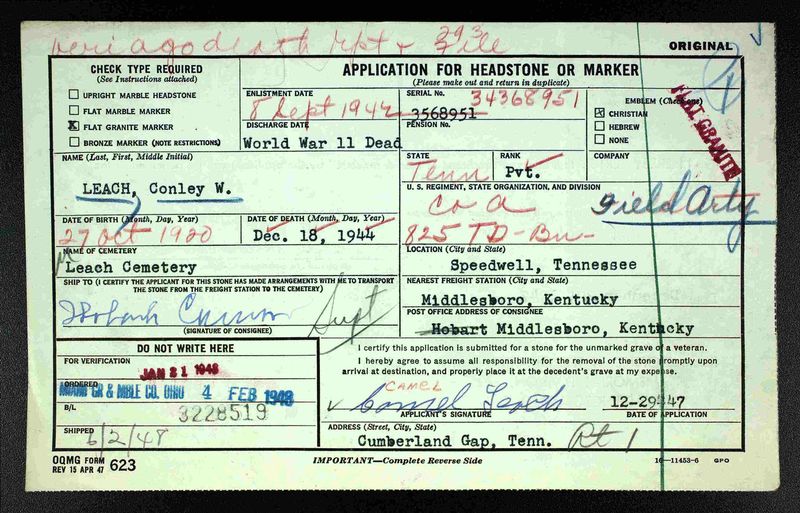 veri a go death rpt + 293 File
ORIGINAL
CHECK TYPE REQUIRED
(See Instructions attached)
UPRIGHT MARBLE HEADSTONE
FLAT MARBLE MARKER
X FLAT GRANITE MARKER
BRONZE MARKER (NOTE RESTRICTIONS)
APPLICATION FOR HEADSTONE OR MARKER
(Please make out and return in duplicate)
ENLISTMENT DATE
8 Sept 1942
DISCHARGE DATE
World War 11 Dead
SERIAL No.
34368951
3568951
PENSION No.
EMBLEM (Check one)
X CHRISTIAN
HEBREW
NONE
FLAT GRANITE
NAME (Last, First, Middle Initial)
LEACH, Conley W.
STATE
Tenn
RANK
Pvt.
COMPANY
U. S. REGIMENT, STATE ORGANIZATION, AND DIVISION
Co a
Field Arty
825 TD-Bn-
DATE OF BIRTH (Month, Day, Year)
27 Oct 1920
DATE OF DEATH (Month, Day, Year)
Dec. 18, 1944
NAME OF CEMETERY
Leach Cemetery
LOCATION (City and State)
Speedwell, Tennessee
SHIP TO (I CERTIFY THE APPLICANT FOR THIS STONE HAS MADE ARRANGEMENTS WITH ME TO TRANSPORT
THE STONE FROM THE FREIGHT STATION TO THE CEMETERY)
Hobart
Supt
(SIGNATURE OF CONSIGNEE)
NEAREST FREIGHT STATION (City and State)
Middlesboro, Kentucky
POST OFFICE ADDRESS OF CONSIGNEE
Hobart Middlesboro, Kentucky
DO NOT WRITE HERE
FOR VERIFICATION
JAN 21 1948
ORDERED
MIAMI GR & MBLE CO, OHIO 4 FEB 1948
B/L
3228519
SHIPPED
6/2/48
I certify this application is submitted for a stone for the unmarked grave of a veteran.
I hereby agree to assume all responsibility for the removal of the stone promptly upon
arrival at destination, and properly place it at the decedent's grave at my expense.
CAMEL
Camel Leach
12-29-47
APPLICANT'S SIGNATURE
DATE OF APPLICATION
ADDRESS (Street, City, State)
Cumberland Gap, Tenn. Rt 1
OQMG FORM
REV 15 APR 47 623
IMPORTANT—Complete Reverse Side
16—11453-6 GPO